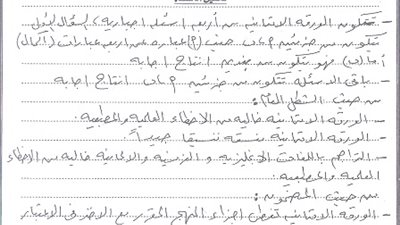 - تتكون الورقة الامتحانية من أربع أسئلة اجبارية، السؤال الأول
يتكون من جزئيه م، ب حيث (م) عباره عن اربع عبارات (اكمال)
أما (ب) فهو يتكون من جزئيه انتاج اجابة
- باقي الاسئلة تتكون من جزئيه م، ب انتاج اجابة
من حيث الشكل العام:
- الورقه الامتحانيه خاليه من الأخطاء العلمية والمطبعية.
- الورقه الامتحانية منسقة تنسيقاً جيداً.
- التراجم باللغات الانجليزية و الفرنسية و الالمانية خاليه من الأخطاء
العلمية والمطبعية.
من حيث المضمون:
- الورقه الامتحانيه تغطي اجزاء المنهج المقرر مع الاخذ في الاعتبار